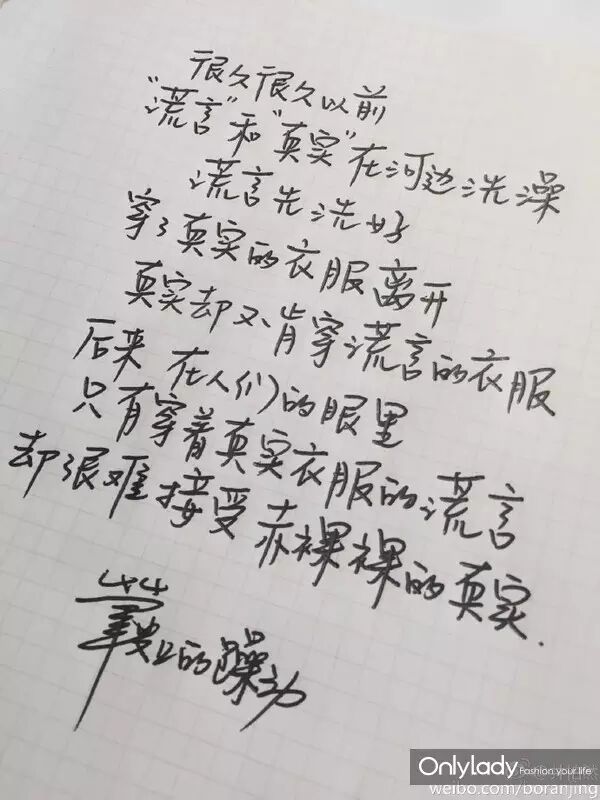 很久很久以前
“谎言”和“真实”在河边洗澡
谎言先洗好
穿了真实的衣服离开
真实却不肯穿谎言的衣服
后来 在人们的眼里
只有穿着真实衣服的谎言
却很难接受赤裸裸的真实.
的躁动
Onlylady Fashion.your life
weibo.com/boranjing